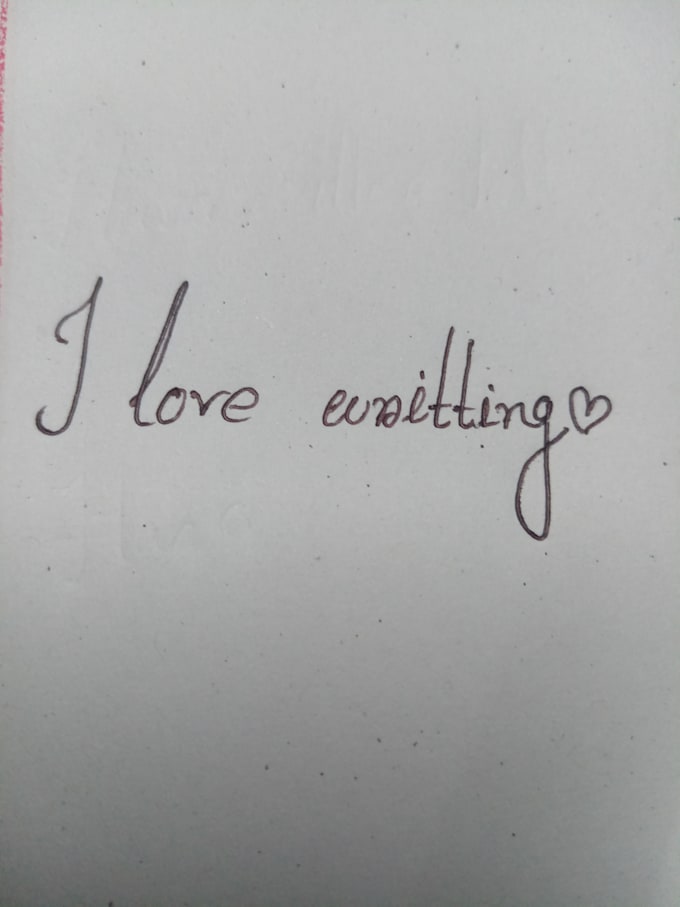 I love writting♡